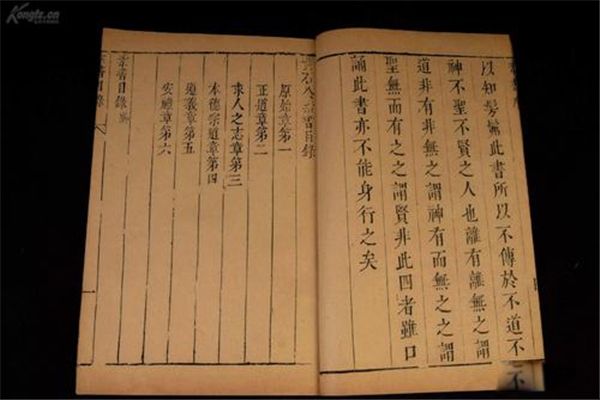 以知髣髴此書所以不傳於不道不
神不聖不賢之人也離有離無之謂
道非有非無之謂神有而無之之謂
聖無而有之之謂賢非此四者雖口
誦此書亦不能身行之矣
黃石公素書目錄
原始章第一
正道章第二
求人之志章第三
本德宗道章第四
遵義章第五
安禮章第六
素書目錄終
素書目錄
一
Kongfz.cn